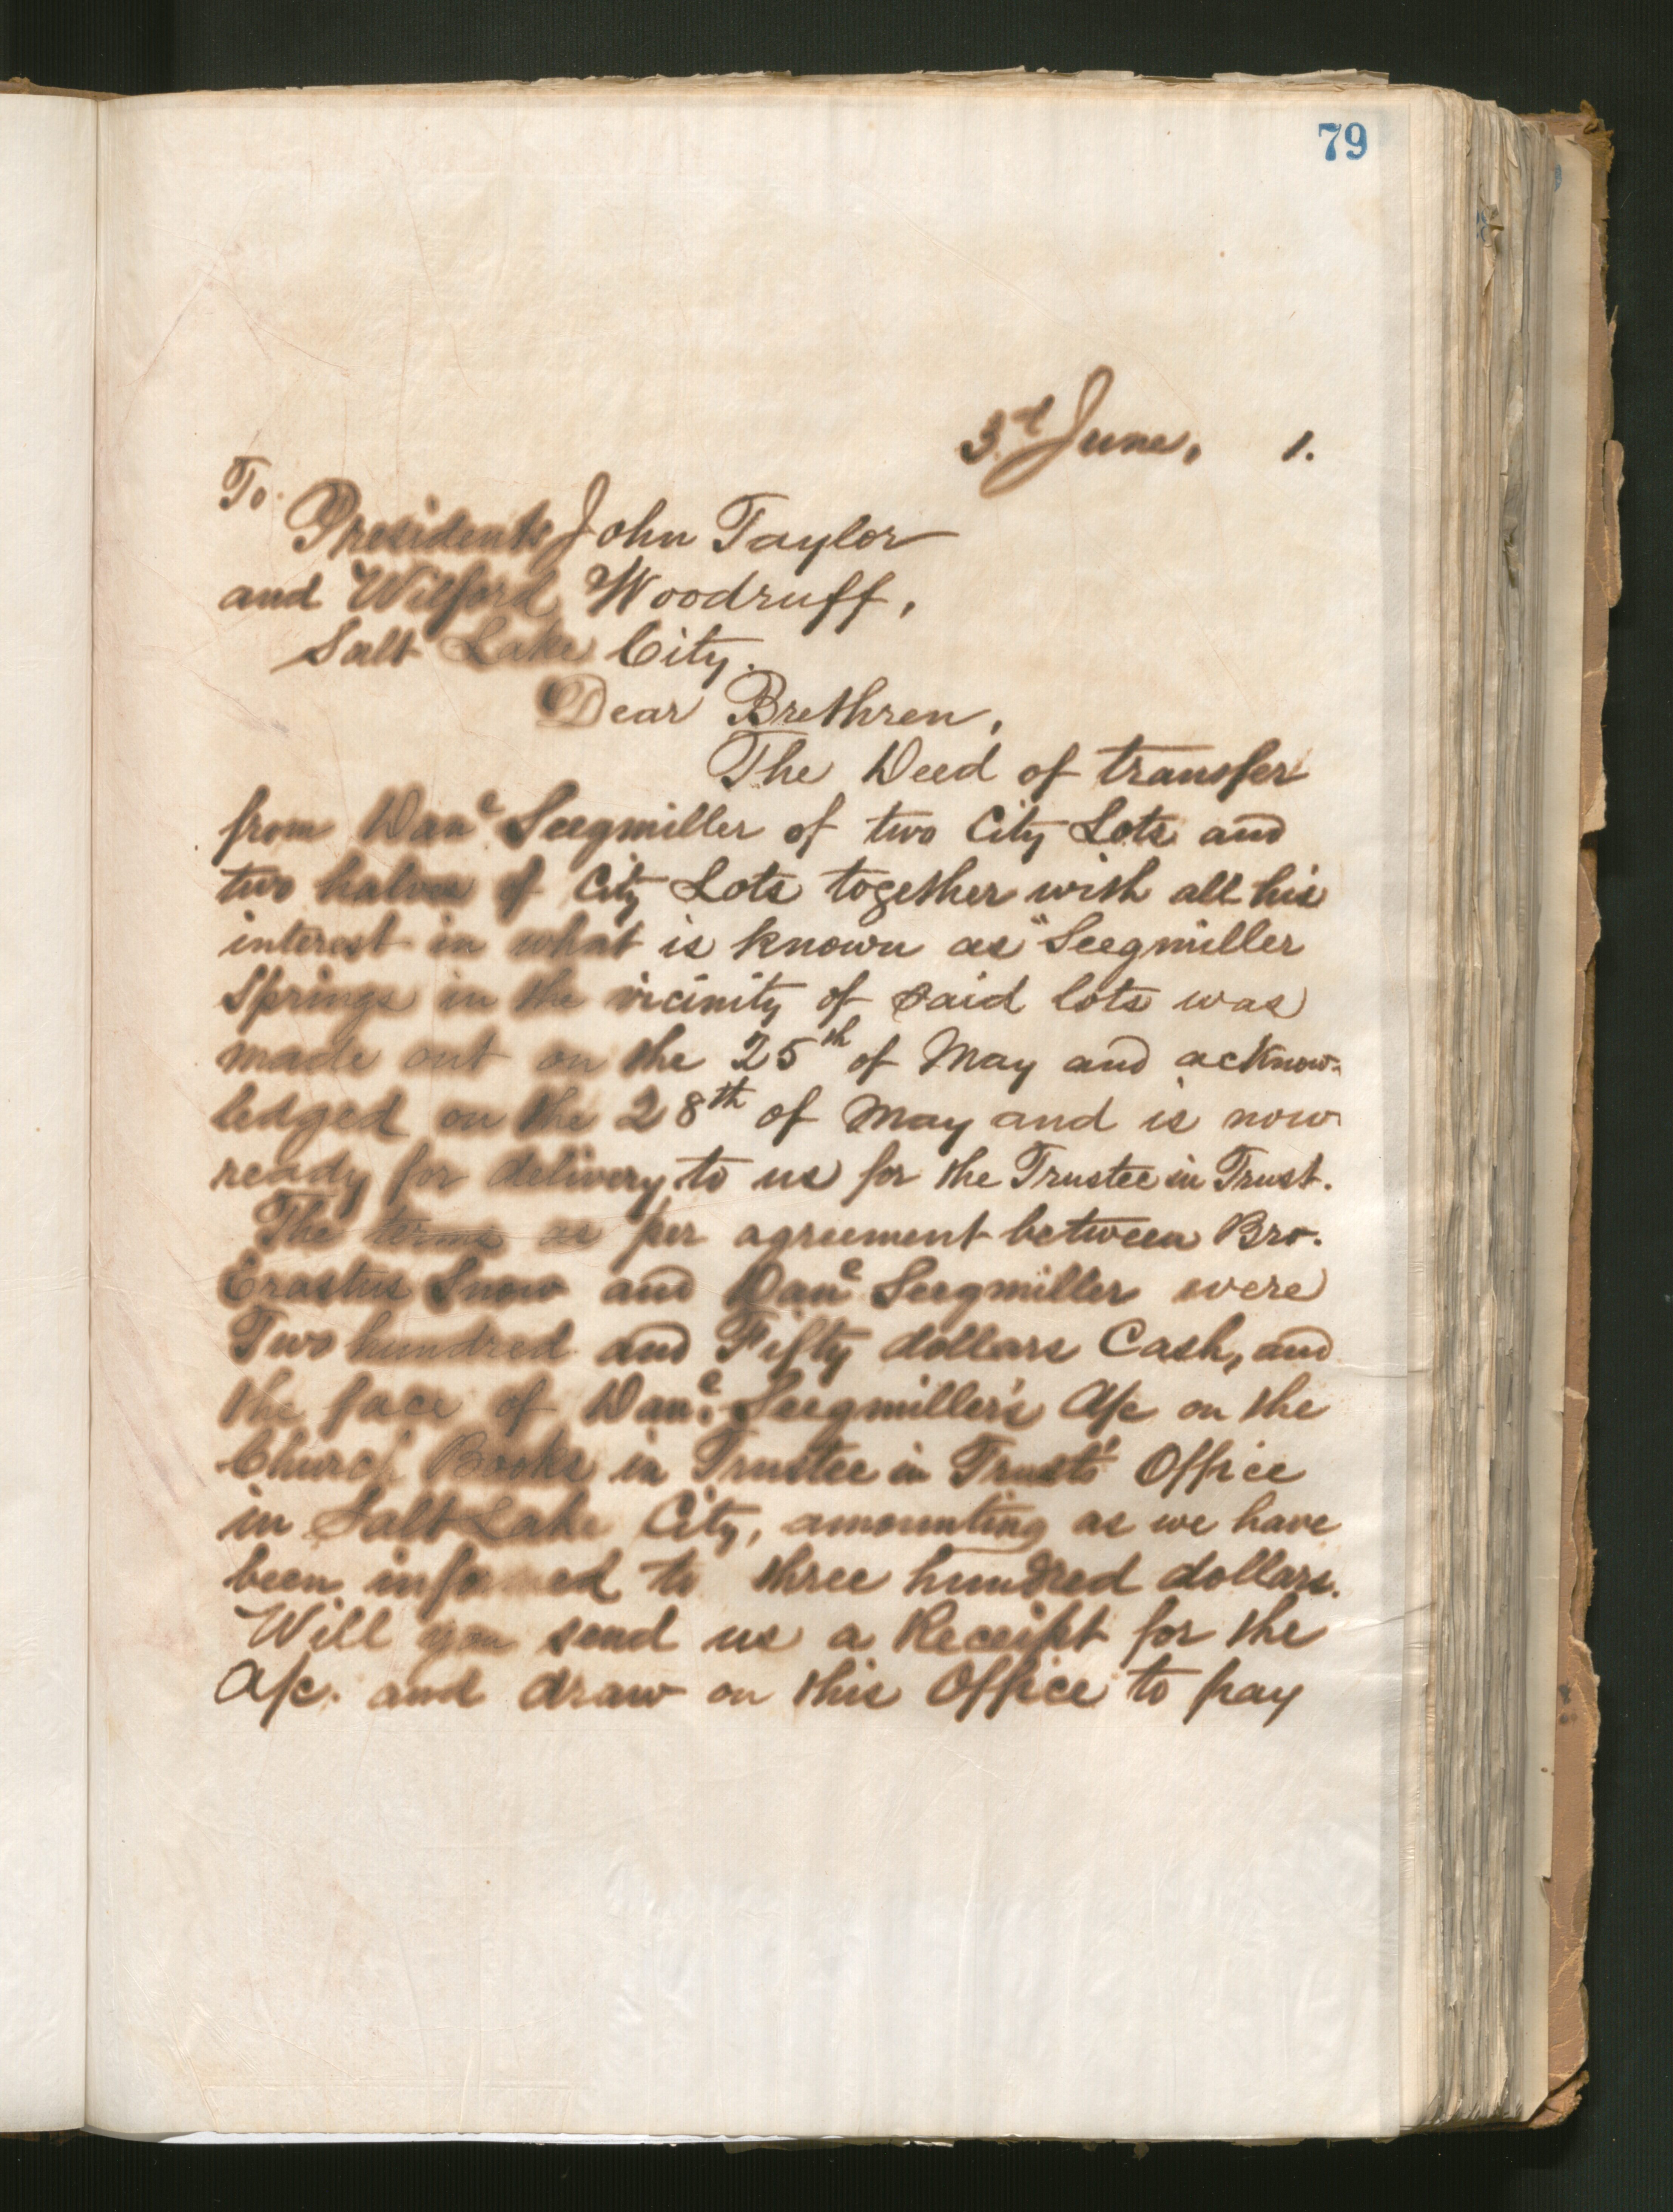 79
3d June, 1.
To
Presidents John Taylor
and Wilford Woodruff,
Salt Lake City.
Dear Brethren,
The Deed of transfer
from Danl Seegmiller of two City Lots and
two halves of City Lots together with all his
interest in what is known as "Seegmiller
Springs in the vicinity of said lots was
made out on the 25th of May and acknow-
ledged on the 28th of May and is now
ready for delivery to us for the Trustee in Trust.
The terms as per agreement between Bro.
Erastus Snow and Danl Seegmiller were
Two hundred and Fifty dollars Cash, and
the face of Danl. Seegmiller's A/c on the
Church Books in Trustee in Trust's Office
in Salt Lake City, amounting as we have
been informed to three hundred dollars.
Will you send us a Receipt for the
A/c. and draw on this Office to pay